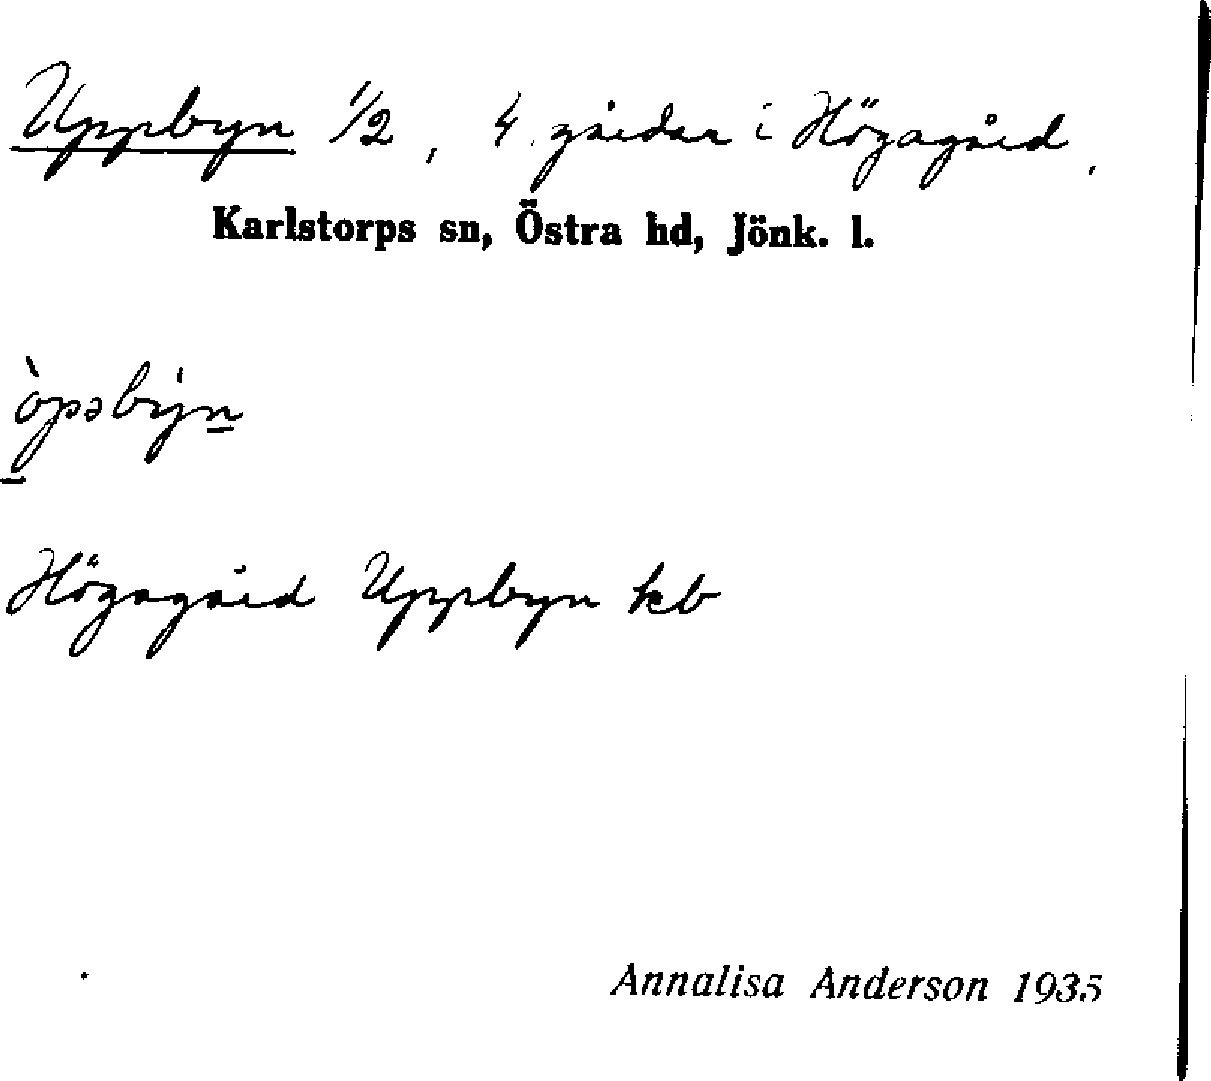 Uppbyn 1/2, 4 gårdar i Högagärd,
Karlstorps sn, Östra hd, Jönk. l.
òpəby̍n
Högagärd Uppbyn kb
Annalisa Anderson 1935